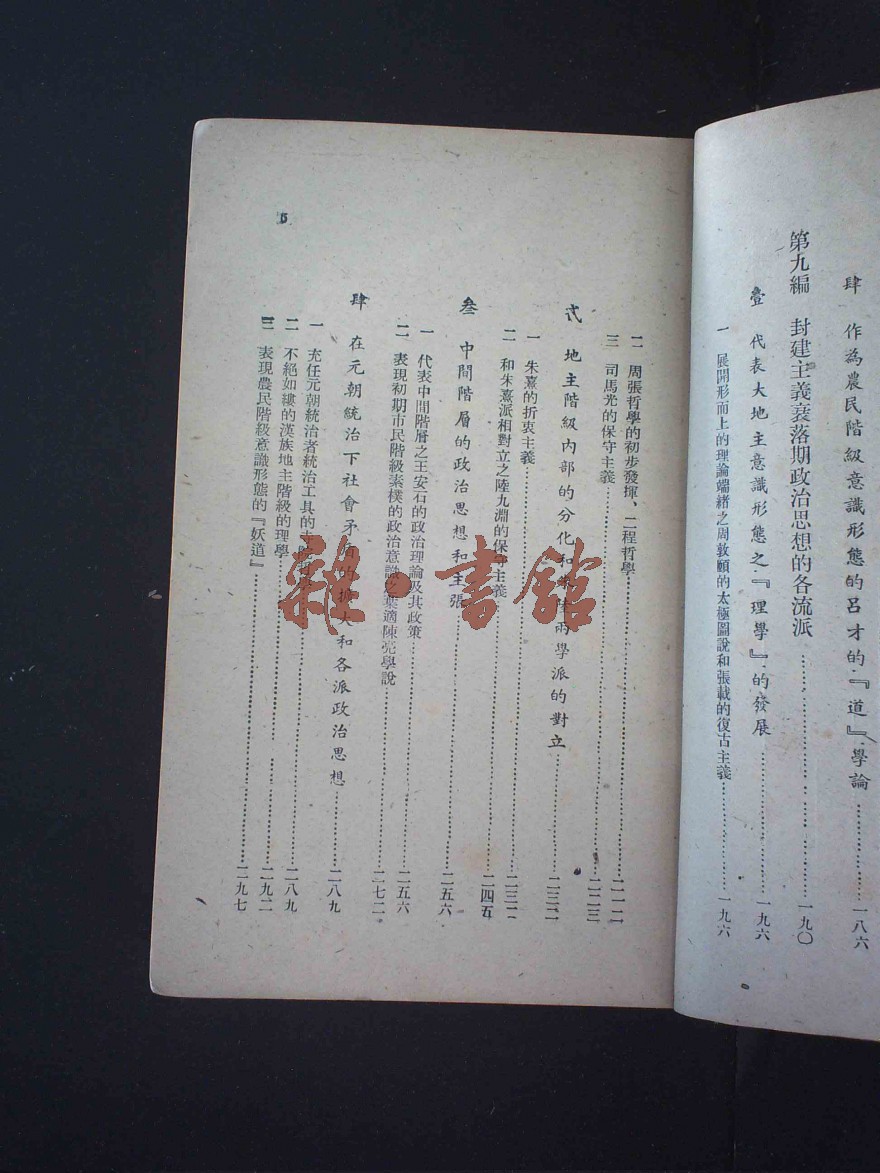 肆 作為農民階級意識形態的呂才的『道』學論……一八六
第九編 封建主義衰落期政治思想的各流派……一九〇
壹 代表大地主意識形態之『理學』的發展……一九六
一 展開形而上的理論端緒之周敦頤的太極圖說和張載的復古主義……一九六
二 周張哲學的初步發揮、二程哲學……二一二
三 司馬光的保守主義……二二三
弍 地主階級內部的分化和 兩學派的對立……二三二
一 朱熹的折衷主義……二三二
二 和朱熹派相對立之陸九淵的保守主義……二四五
叁 中間階層的政治思想和主張……二五六
一 代表中間階層之王安石的政治理論及其政策……二五六
二 表現初期市民階級素樸的政治意識之葉適陳亮學說……二七二
肆 在元朝統治下社會矛盾的擴大和各派政治思想……二八九
一 充任元朝統治者統治工具的……二八九
二 不絕如縷的漢族地主階級的理學……二九二
三 表現農民階級意識形態的『妖道』……二九七
5
雜·書館